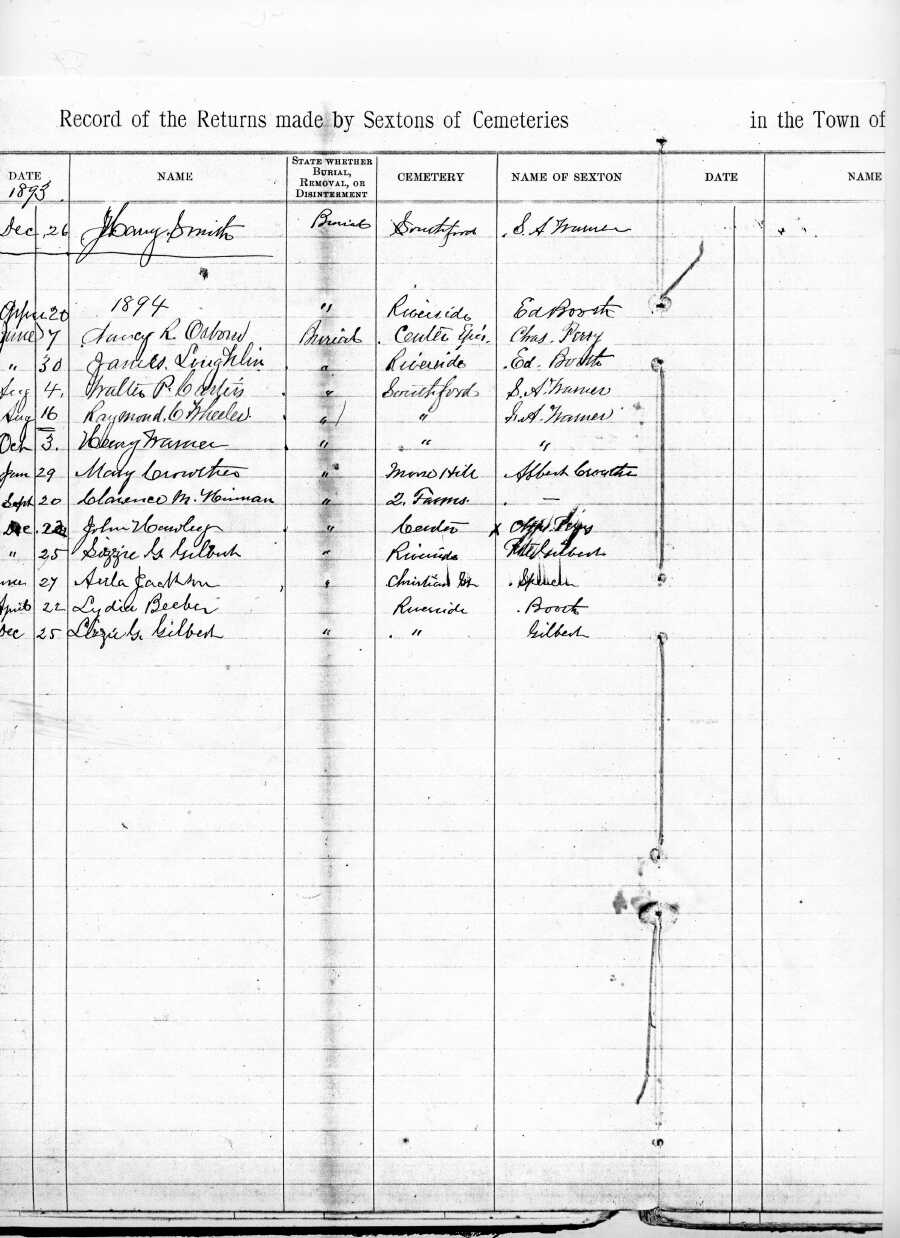 Record of the Returns made by Sextons of Cemeteries in the Town of
DATE NAME STATE WHETHER BURIAL, REMOVAL, OR DISINTERMENT CEMETERY NAME OF SEXTON DATE NAME
1893.
Dec. 26 Harry Smith Burial Southford S. A Warner
April 20 1894 " Riverside Ed Booth
June 7 Nancy R. Osborn Burial Center Epis. Chas.
" 30 James Loughlin " Riverside Ed. Booth
Aug 4. Walter P. Curtis " Southford S. A Warner
Aug 16 Raymond. C Wheeler " " S. A. Warner
Oct 3. Henry Warner " " "
Jan 29 Mary Crowther " Moose Hill Albert Crowther
Sept 20 Clarence M. Hinman " 2. Farms. —
Dec. 22 John Hawley " Center x
" 25 Lizzie G Gilbert " Riverside Gilbert
27 Jackson " Christian St. Spencer
April 22 Lydia Beeber Riverside Booth
Dec 25 Lizzie G. Gilbert " " Gilbert